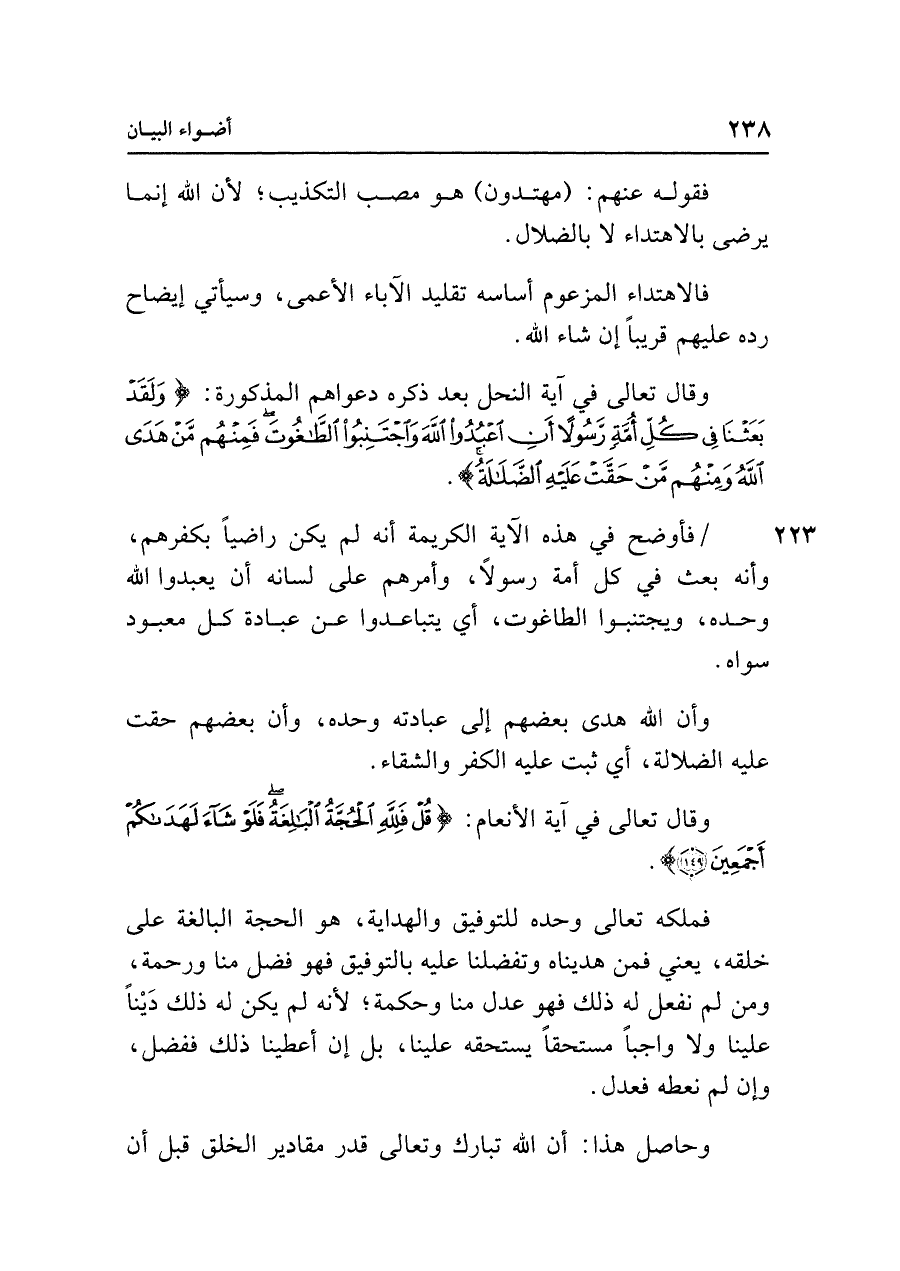 ٢٣٨ أضـواء البيـان
فقولـه عنهم: (مهتـدون) هـو مصـب التكذيب؛ لأن الله إنمـا
يرضى بالاهتداء لا بالضلال.
فالاهتداء المزعوم أساسه تقليد الآباء الأعمى، وسيأتي إيضاح
رده عليهم قريباً إن شاء الله.
وقال تعالى في آية النحل بعد ذكره دعواهم المذكورة: ﴿ وَلَقَدْ
بَعَثْنَا فِى كُلِّ أُمَّةٍ رَّسُولًا أَنِ ٱعْبُدُوا۟ ٱللَّهَ وَٱجْتَنِبُوا۟ ٱلطَّٰغُوتَ ۖ فَمِنْهُم مَّنْ هَدَى
ٱللَّهُ وَمِنْهُم مَّنْ حَقَّتْ عَلَيْهِ ٱلضَّلَٰلَةُ ۚ﴾.
٢٢٣ / فأوضح في هذه الآية الكريمة أنه لم يكن راضياً بكفرهم،
وأنه بعث في كل أمة رسولًا، وأمرهم على لسانه أن يعبدوا الله
وحـده، ويجتنبـوا الطاغوت، أي يتباعـدوا عـن عبـادة كـل معبـود
سواه.
وأن الله هدى بعضهم إلى عبادته وحده، وأن بعضهم حقت
عليه الضلالة، أي ثبت عليه الكفر والشقاء.
وقال تعالى في آية الأنعام: ﴿ قُلْ فَلِلَّهِ ٱلْحُجَّةُ ٱلْبَٰلِغَةُ ۖ فَلَوْ شَآءَ لَهَدَىٰكُمْ
أَجْمَعِينَ ١٤٩﴾.
فملكه تعالى وحده للتوفيق والهداية، هو الحجة البالغة على
خلقه، يعني فمن هديناه وتفضلنا عليه بالتوفيق فهو فضل منا ورحمة،
ومن لم نفعل له ذلك فهو عدل منا وحكمة؛ لأنه لم يكن له ذلك دَيْناً
علينا ولا واجباً مستحقاً يستحقه علينا، بل إن أعطينا ذلك ففضل،
وإن لم نعطه فعدل.
وحاصل هذا: أن الله تبارك وتعالى قدر مقادير الخلق قبل أن